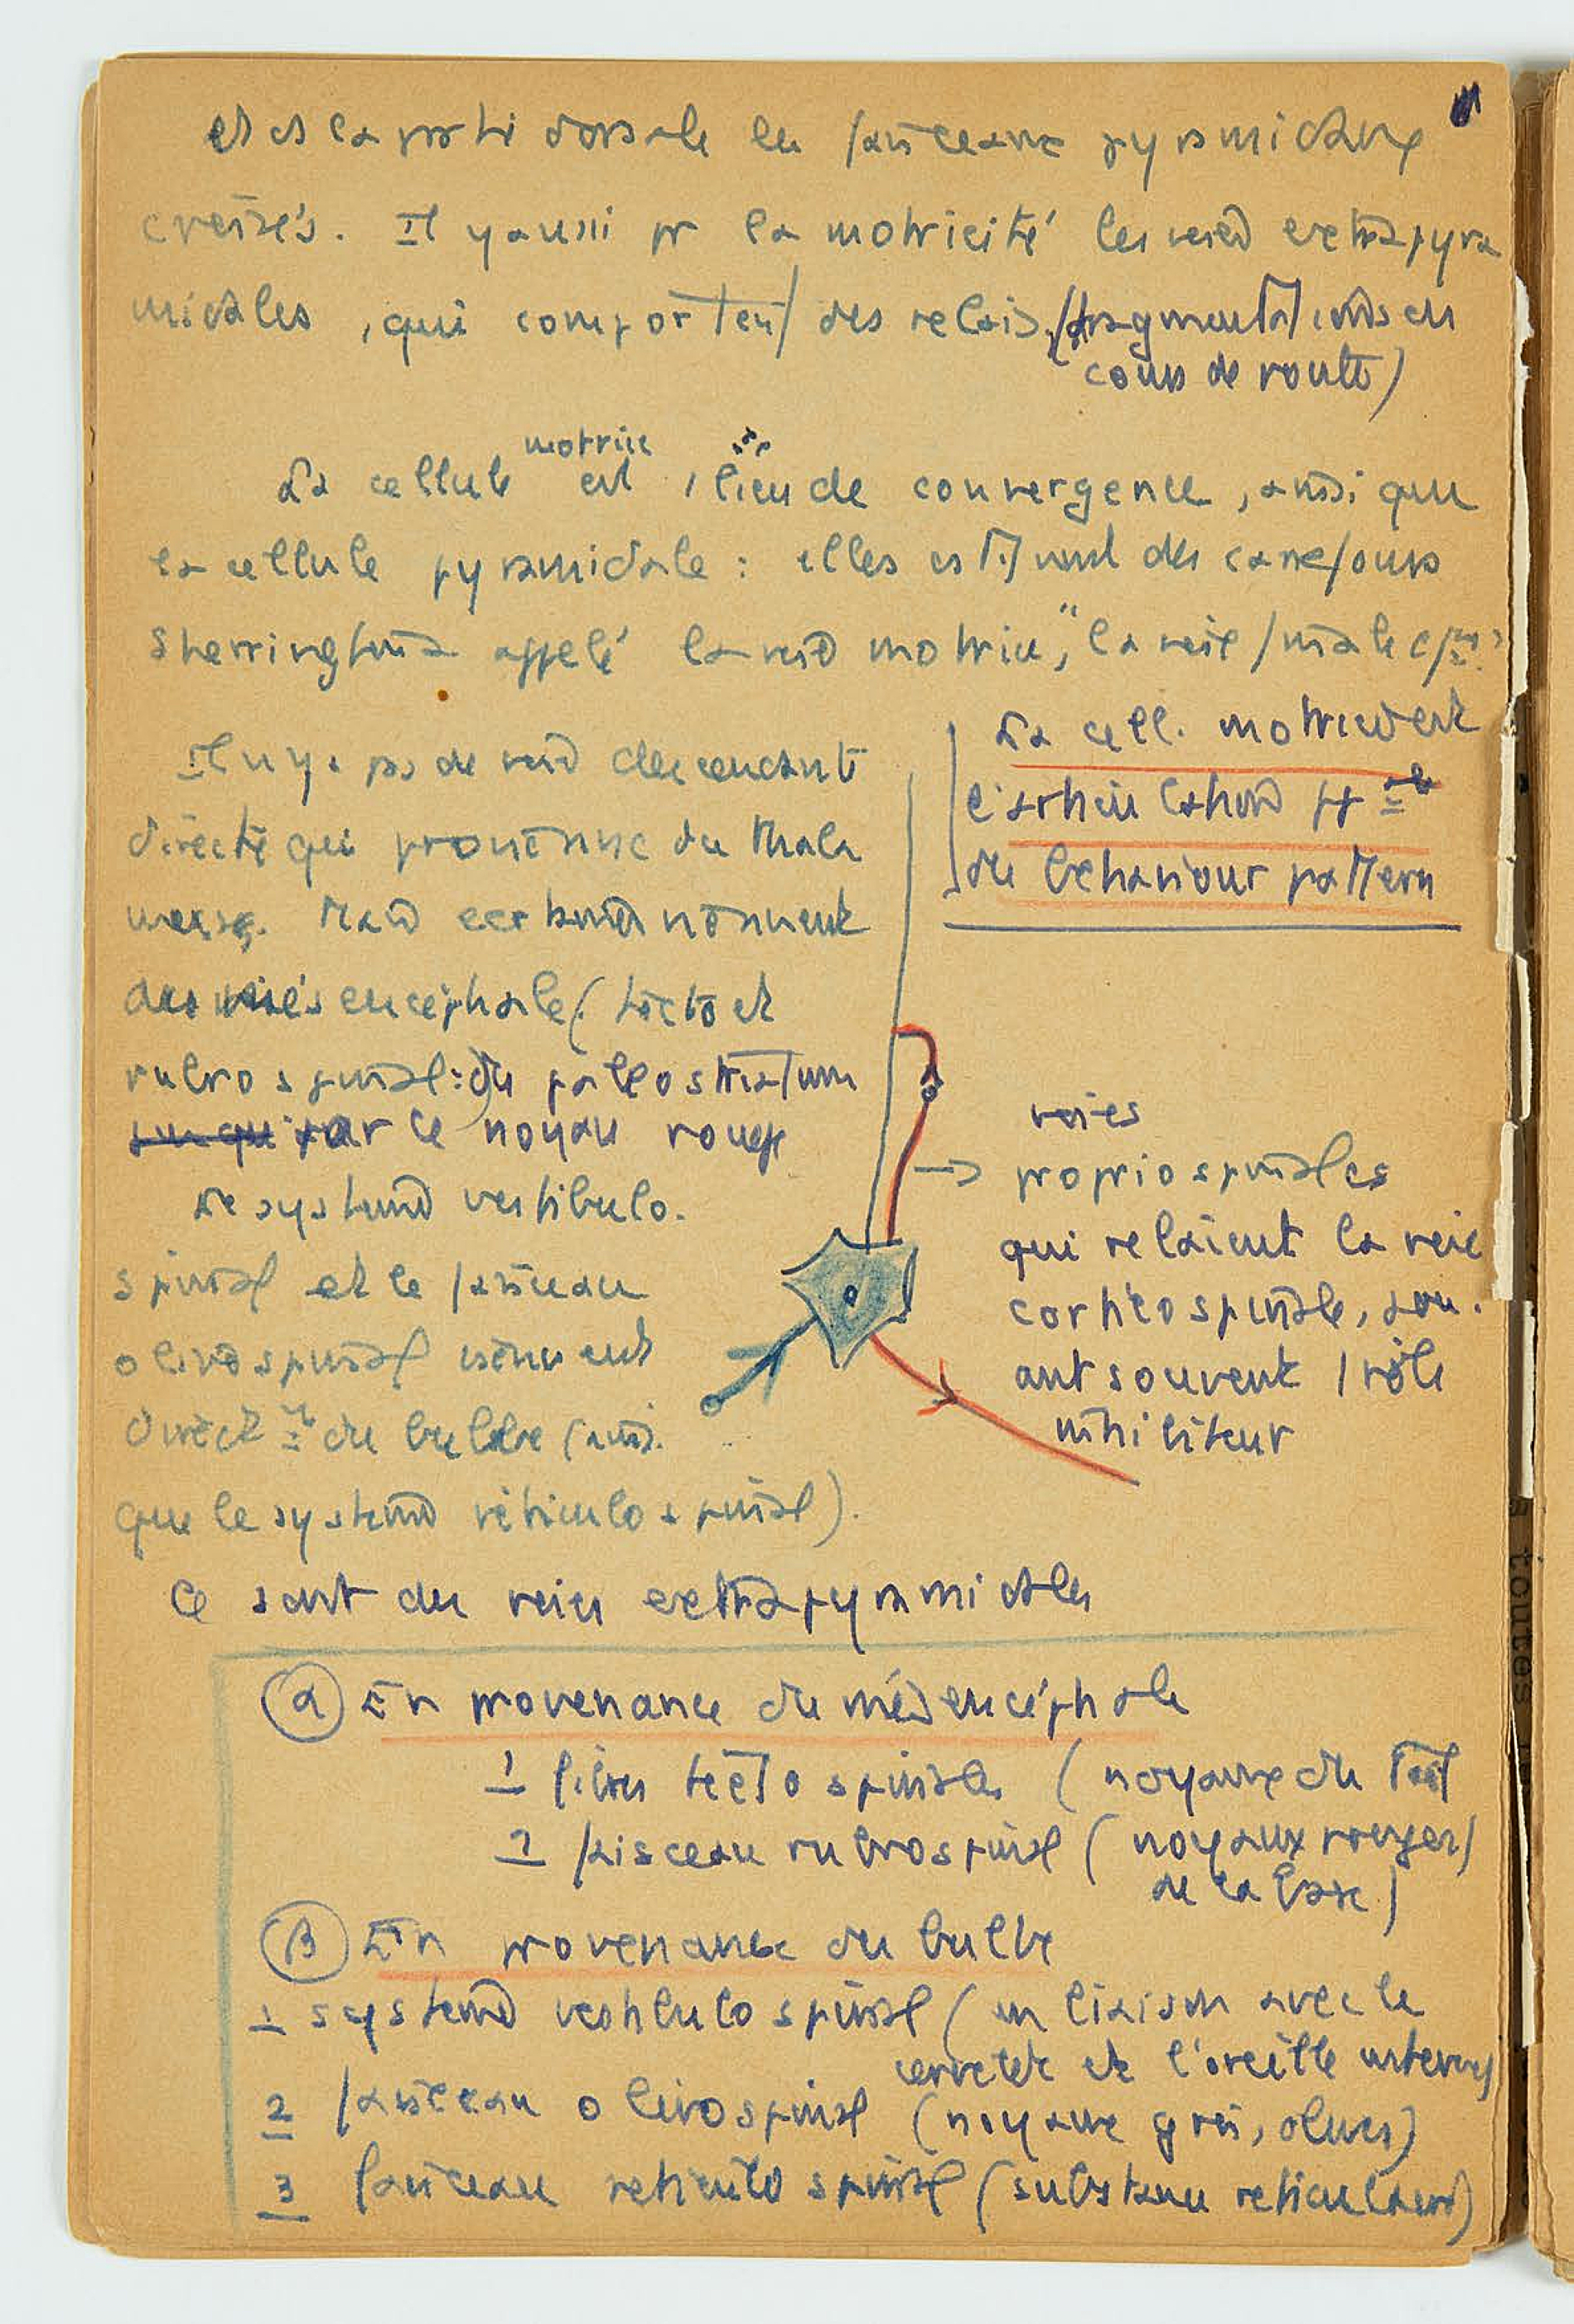 et ds la partie dorsale les faisceaux pyramidaux
croisés. Il y a aussi pr la motricité les voies extrapyra
midales, qui comportent des relais (fragmentations en
cours de route)
La cellule motrice est 1 lieu de convergence, ainsi que
la cellule pyramidale : elles st des carrefours
Sherrington a appelé la voie motrice, "la voie finale
La cell. motrice est
l'articulation
du behaviour pattern
Il n'y a pas de voie descendante
directe qui provienne du thala
mus. Mais certaines viennent
du mésencéphale (tecto et
rubrospinal : du paleostriatum
par le noyau rouge
Le système vestibulo.
spinal et le faisceau
olivospinal viennent
direct du bulbe (ainsi
que le système réticulospinal).
voies
propriospinales
qui relaient la voie
corticospinale, jou.
ant souvent 1 rôle
inhibiteur
Ce sont des voies extrapyramidales
A En provenance du mésencéphale
1 fibres tectospinales (noyaux du Tect
2 faisceau rubrospinal (noyaux rouges
de la base)
B En provenance du bulbe
1 système vestibulospinal (en liaison avec le
cervelet et l'oreille interne)
2 faisceau olivospinal (noyaux gris, olives)
3 faisceau reticulospinal (substance reticulaire)
toutes